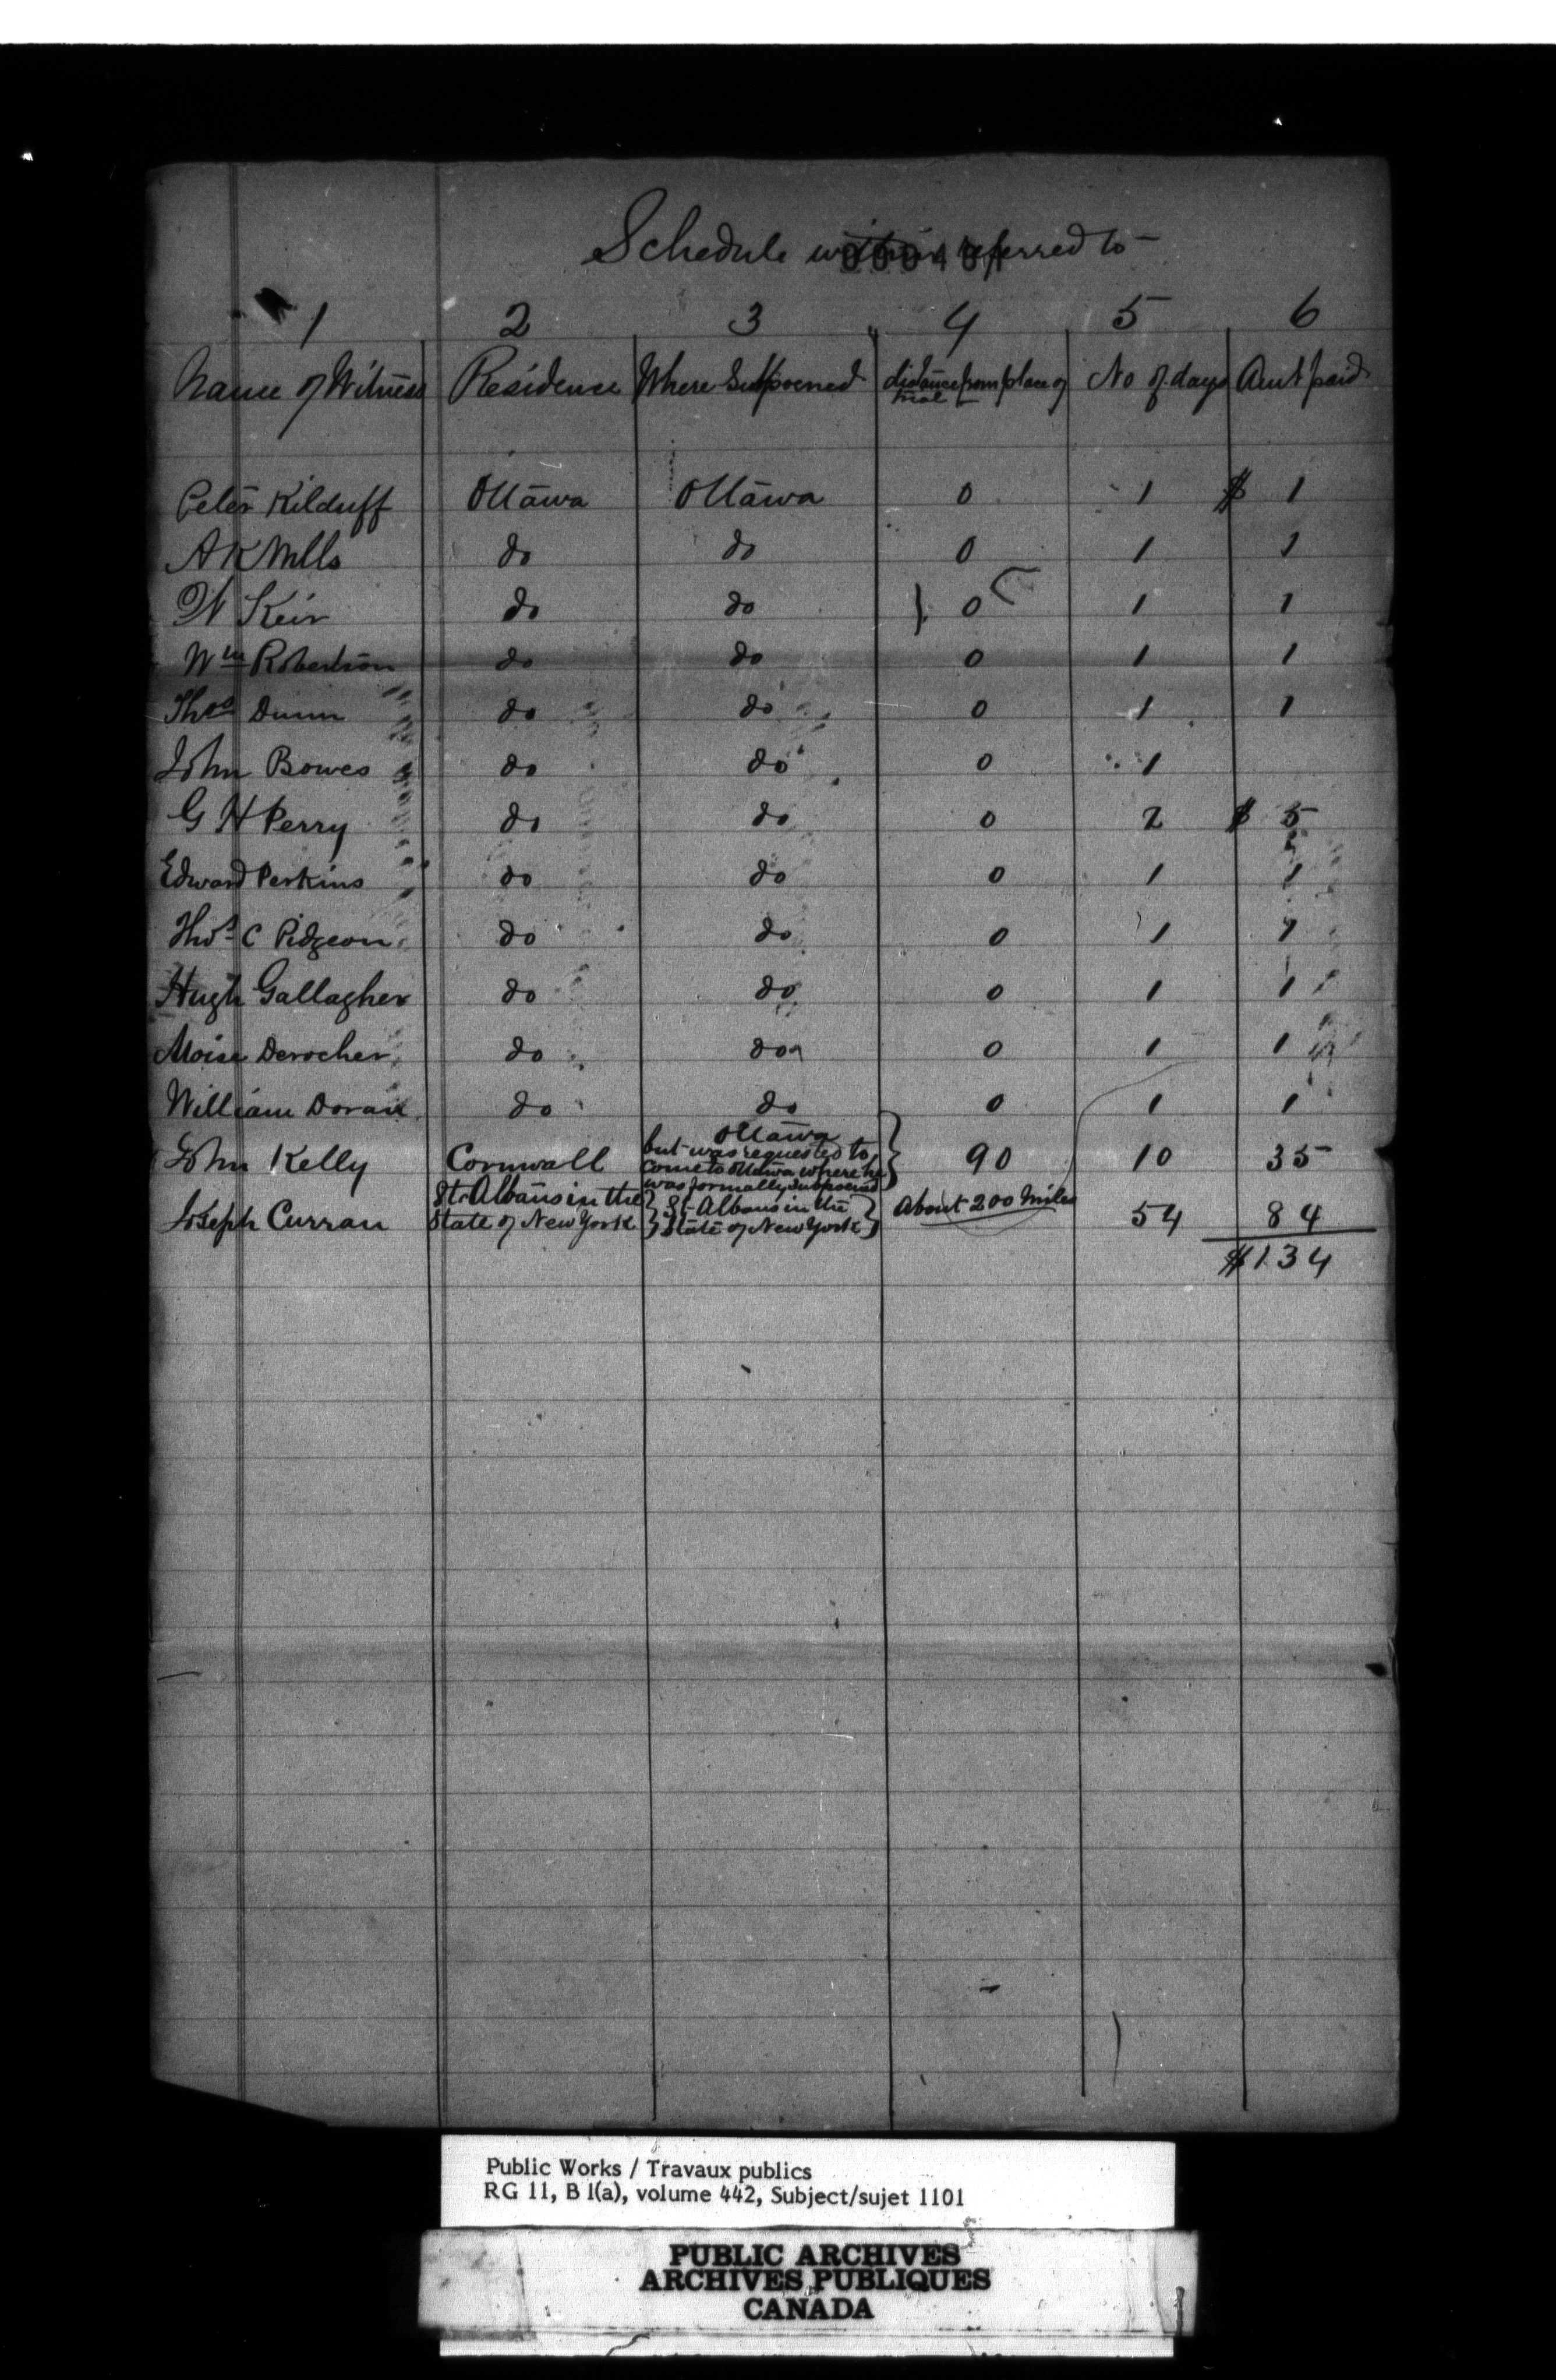 Schedule within referred to —
1 2 3 4 5 6
Name of Witness Residence Where Subpoened distance from place of trial No of days Amt paid
Peter Kilduff Ottawa Ottawa 0 1 $ 1
A K Mills do do 0 1 1
W Keir do do } 0 1 1
Wm Robertson do do 0 1 1
Thos Dunn do do 0 1 1
John Bowes do do 0 1
G H Perry do do 0 2 $ 5
Edward Perkins do do 0 1 1
Thos C Pidgeon do do 0 1 1
Hugh Gallagher do do 0 1 1
Moise Derocher do do 0 1 1
William Doran do do 0 1 1
Ottawa
but was requested to
John Kelly Cornwall come to Ottawa where he } 90 10 35
was formally subpoened
Joseph Curran St Albans in the } St Albans in the } About 200 miles 54 84
State of New York } State of New York }
$134
Public Works / Travaux publics
RG 11, B 1(a), volume 442, Subject/sujet 1101
PUBLIC ARCHIVES
ARCHIVES PUBLIQUES
CANADA